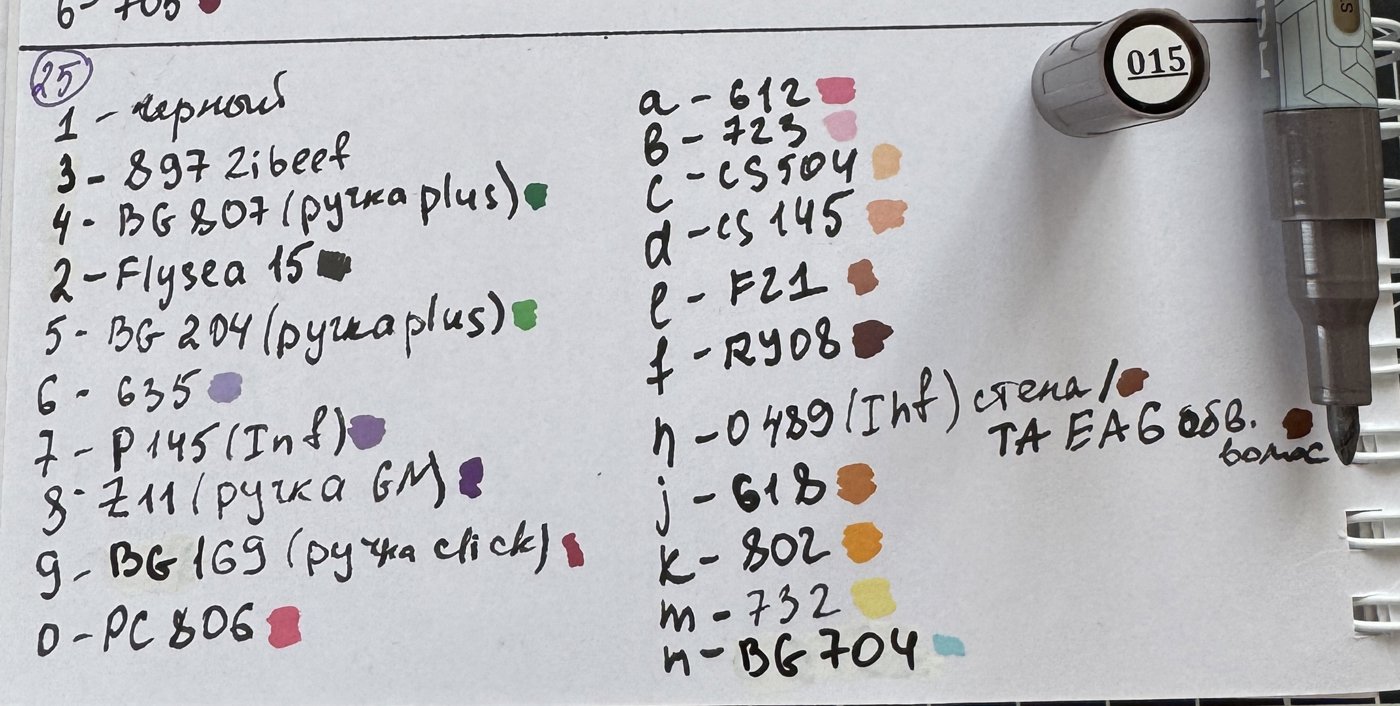 6 - 705
25
1 - черный
3 - 897 Zibeef
4 - BG 807 (ручка plus)
2 - Flysea 15
5 - BG 204 (ручка plus)
6 - 635
7 - P145 (Inf)
8 - Z11 (ручка GM)
9 - BG 169 (ручка click)
0 - PC 806
a - 612
в - 723
c - CS 504
d - CS 145
e - F21
f - RY08
h - 0489 (Inf) стена /
TA EA6 обв.
волос
j - 618
k - 802
m - 732
n - BG 704
015